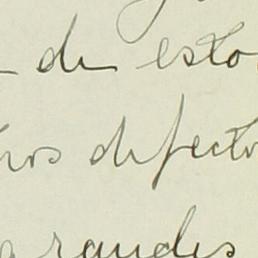 de esto
ros defecto
grandes